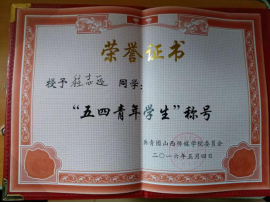 荣誉证书
授予 程志远 同学：
“五四青年学生”称号
共青团山西传媒学院委员会
二〇一六年五月四日